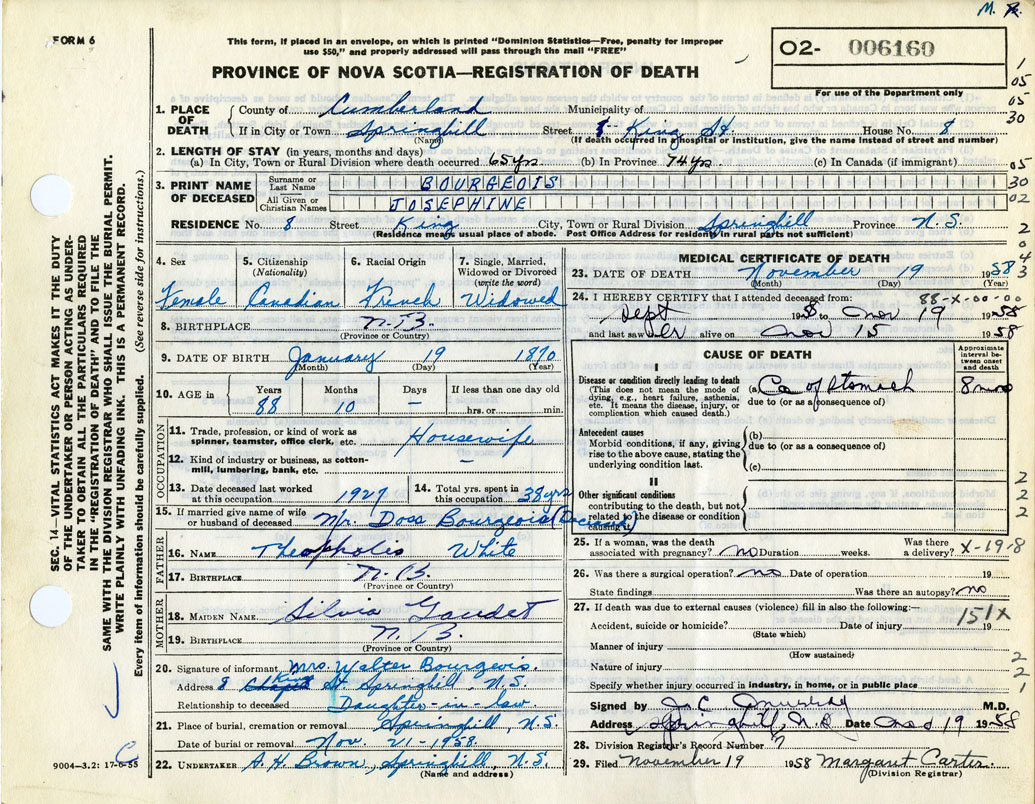 M. R.
FORM 6
This form, if placed in an envelope, on which is printed "Dominion Statistics—Free, penalty for improper
use $50," and properly addressed will pass through the mail "FREE"
02- 006160
PROVINCE OF NOVA SCOTIA—REGISTRATION OF DEATH
For use of the Department only
1. PLACE OF DEATH
County of Cumberland Municipality of
If in City or Town Springhill Street 8- King St. House No. 8
(Name) (If death occurred in hospital or institution, give the name instead of street and number)
2. LENGTH OF STAY (in years, months and days)
(a) In City, Town or Rural Division where death occurred 65 yrs (b) In Province 74 yrs. (c) In Canada (if immigrant)
3. PRINT NAME OF DECEASED
Surname or Last Name BOURGEOIS
All Given or Christian Names JOSEPHINE
RESIDENCE No. 8 Street King City, Town or Rural Division Springhill Province N.S.
(Residence means usual place of abode. Post Office Address for residents in rural parts not sufficient)
4. Sex 5. Citizenship (Nationality) 6. Racial Origin 7. Single, Married, Widowed or Divorced (write the word)
Female Canadian French Widowed
8. BIRTHPLACE N.B.
(Province or Country)
9. DATE OF BIRTH January 19 1870
(Month) (Day) (Year)
10. AGE in Years Months Days If less than one day old
88 10 – hrs. or min.
OCCUPATION
11. Trade, profession, or kind of work as spinner, teamster, office clerk, etc. Housewife
12. Kind of industry or business, as cotton-mill, lumbering, bank, etc. –
13. Date deceased last worked at this occupation 1927 14. Total yrs. spent in this occupation 38 yrs
15. If married give name of wife or husband of deceased Mr. Doss Bourgeois
FATHER
16. NAME Theopholes White
17. BIRTHPLACE N.B.
(Province or Country)
MOTHER
18. MAIDEN NAME Silvia Gaudet
19. BIRTHPLACE N.B.
(Province or Country)
20. Signature of informant Mrs. Walter Bourgeois.
Address 8 King St. Springhill, N.S.
Relationship to deceased Daughter-in-law.
21. Place of burial, cremation or removal Springhill, N.S.
Date of burial or removal Nov. 21-1958.
22. UNDERTAKER A. H. Brown, Springhill, N.S.
(Name and address)
MEDICAL CERTIFICATE OF DEATH
23. DATE OF DEATH November 19 1958
(Month) (Day) (Year)
24. I HEREBY CERTIFY that I attended deceased from: 88-X-00-00
Sept 1958 to Nov 19 1958
and last saw her alive on Nov 15 1958
CAUSE OF DEATH
Approximate interval between onset and death
I
Disease or condition directly leading to death
(This does not mean the mode of dying, e.g., heart failure, asthenia, etc. It means the disease, injury, or complication which caused death.)
(a) Ca of Stomach 8 mos
due to (or as a consequence of)
Antecedent causes
Morbid conditions, if any, giving rise to the above cause, stating the underlying condition last.
(b)
due to (or as a consequence of)
(c)
II
Other significant conditions
contributing to the death, but not related to the disease or condition causing it.
25. If a woman, was the death associated with pregnancy? no Duration weeks. Was there a delivery? X-19-8
26. Was there a surgical operation? no Date of operation 19
State findings Was there an autopsy? no
27. If death was due to external causes (violence) fill in also the following:—
151X
Accident, suicide or homicide? Date of injury 19
(State which)
Manner of injury
(How sustained)
Nature of injury
Specify whether injury occurred in industry, in home, or in public place
Signed by J. C. Murray M.D.
Address Springhill, N.S. Date Nov 19 1958
28. Division Registrar's Record Number
29. Filed November 19 1958 Margaret Carter.
(Division Registrar)
SEC. 14—VITAL STATISTICS ACT MAKES IT THE DUTY
OF THE UNDERTAKER OR PERSON ACTING AS UNDER-
TAKER TO OBTAIN ALL THE PARTICULARS REQUIRED
IN THE "REGISTRATION OF DEATH" AND TO FILE THE
SAME WITH THE DIVISION REGISTRAR WHO SHALL ISSUE THE BURIAL PERMIT.
WRITE PLAINLY WITH UNFADING INK. THIS IS A PERMANENT RECORD.
Every item of information should be carefully supplied. (See reverse side for instructions.)
9004—3.2: 17-6-55
1
05
05
30
05
30
02
2
0
4
3
2
2
2
2
2
1